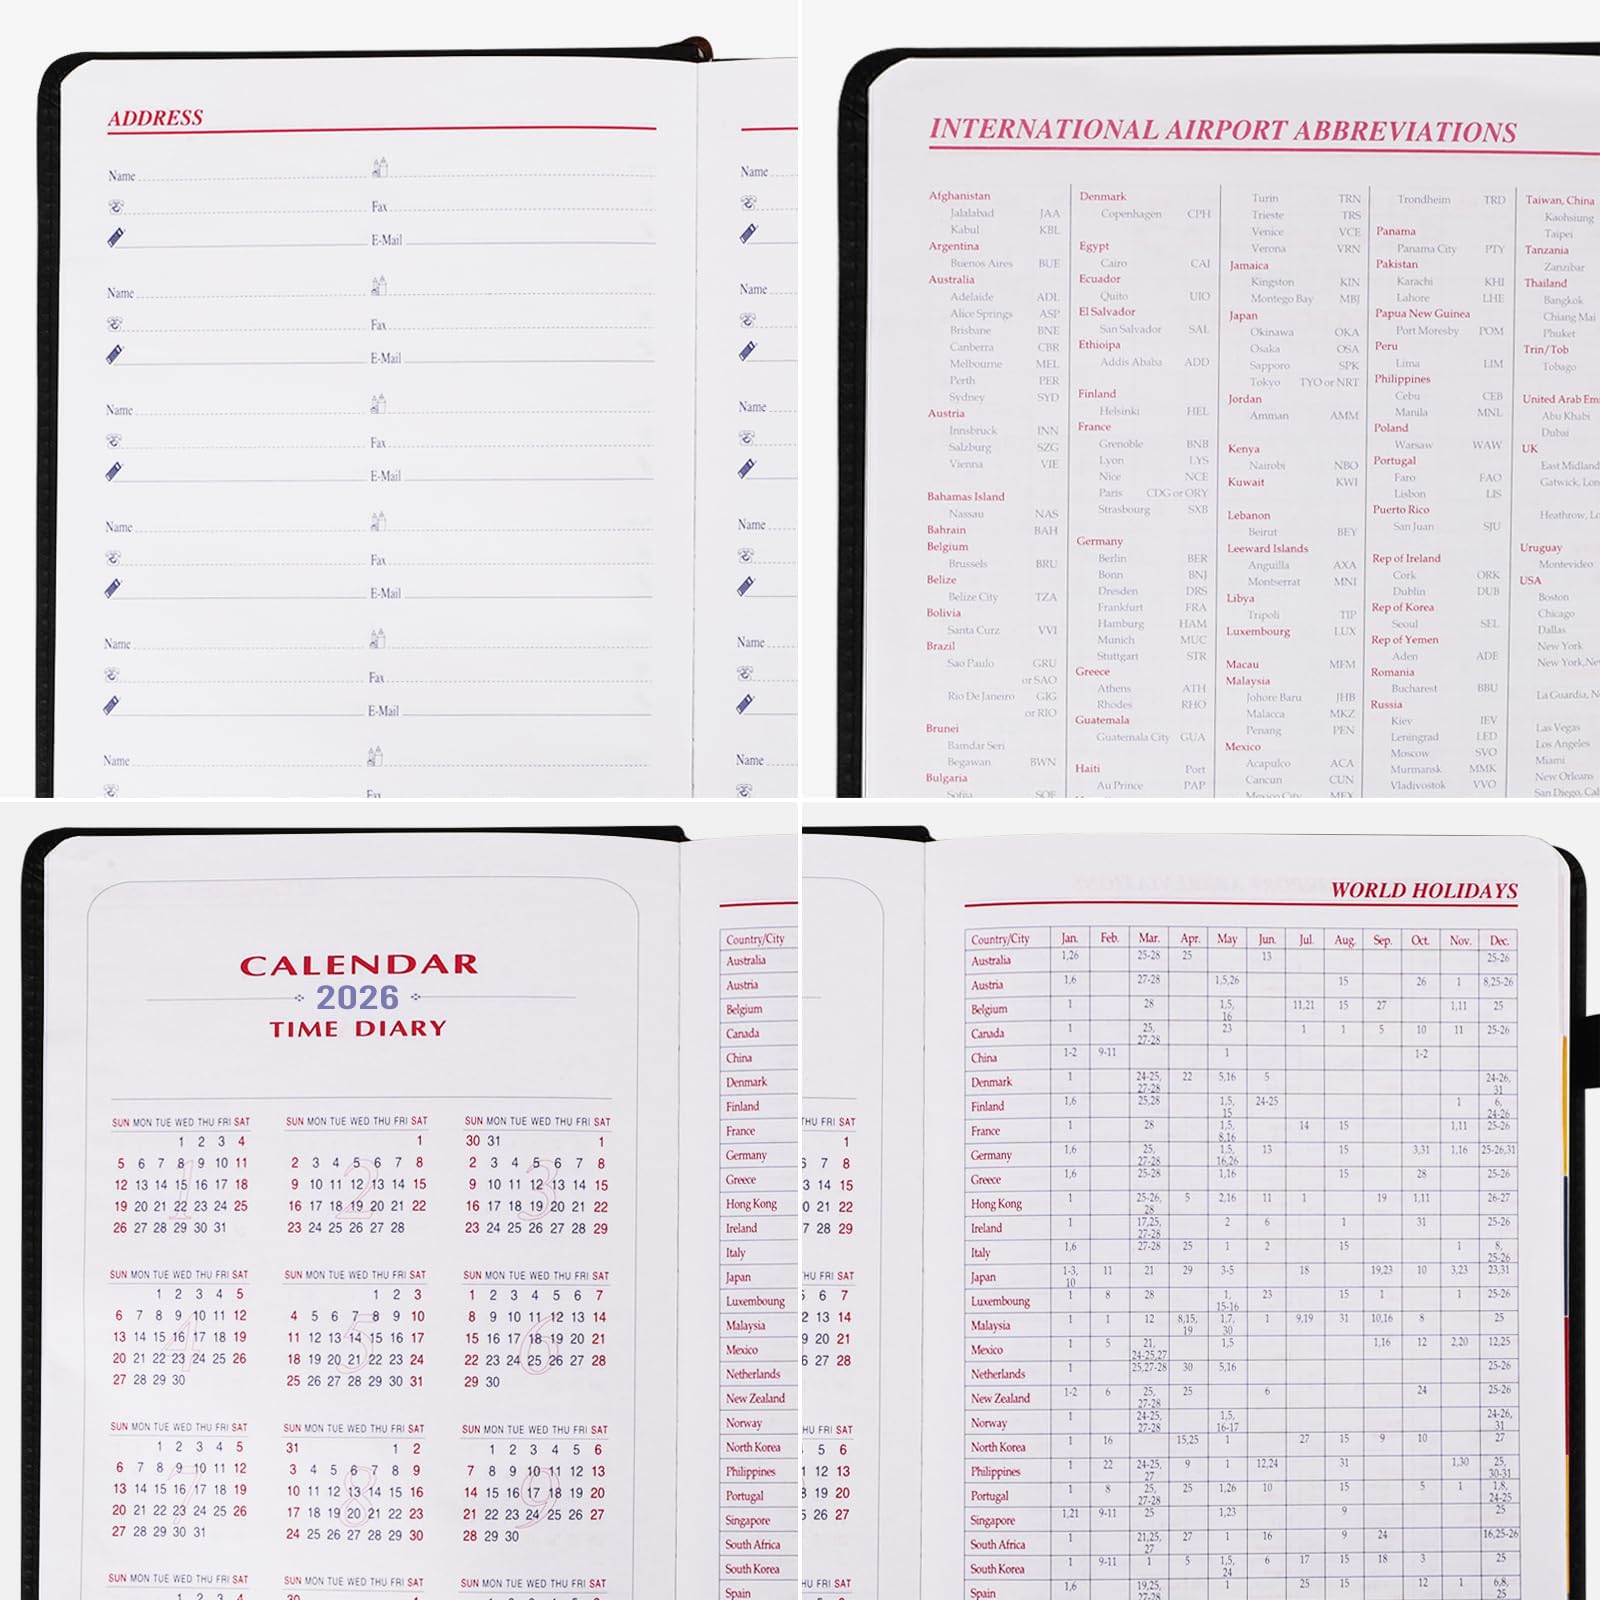 ADDRESS
Name
Fax
E-Mail
Name
Fax
E-Mail
Name
Fax
E-Mail
Name
Fax
E-Mail
Name
Fax
E-Mail
Name
Fax
Name
Name
Name
Name
Name
Name
INTERNATIONAL AIRPORT ABBREVIATIONS
Afghanistan
Jalalabad JAA
Kabul KBL
Argentina
Buenos Aires BUE
Australia
Adelaide ADL
Alice Springs ASP
Brisbane BNE
Canberra CBR
Melbourne MEL
Perth PER
Sydney SYD
Austria
Innsbruck INN
Salzburg SZG
Vienna VIE
Bahamas Island
Nassau NAS
Bahrain BAH
Belgium
Brussels BRU
Belize
Belize City TZA
Bolivia
Santa Curz VVI
Brazil
Sao Paulo GRU
or SAO
Rio De Janeiro GIG
or RIO
Brunei
Bamdar Seri
Begawan BWN
Bulgaria
Sofija SOF
Denmark
Copenhagen CPH
Egypt
Cairo CAI
Ecuador
Quito UIO
El Salvador
San Salvador SAL
Ethioipa
Addis Ababa ADD
Finland
Helsinki HEL
France
Grenoble BNB
Lyon LYS
Nice NCE
Paris CDG or ORY
Strasbourg SXB
Germany
Berlin BER
Bonn BNJ
Dresden DRS
Frankfurt FRA
Hamburg HAM
Munich MUC
Stuttgart STR
Greece
Athens ATH
Rhodes RHO
Guatemala
Guatemala City GUA
Haiti Port
Au Prince PAP
Turin TRN
Trieste TRS
Venice VCE
Verona VRN
Jamaica
Kingston KIN
Montego Bay MBJ
Japan
Okinawa OKA
Osaka OSA
Sapporo SPK
Tokyo TYO or NRT
Jordan
Amman AMM
Kenya
Nairobi NBO
Kuwait KWI
Lebanon
Beirut BEY
Leeward Islands
Anguilla AXA
Montserrat MNI
Libya
Tripoli TIP
Luxembourg LUX
Macau MFM
Malaysia
Johore Baru JHB
Malacca MKZ
Penang PEN
Mexico
Acapulco ACA
Cancun CUN
Mexico City MEX
Trondheim TRD
Panama
Panama City PTY
Pakistan
Karachi KHI
Lahore LHE
Papua New Guinea
Port Moresby POM
Peru
Lima LIM
Philippines
Cebu CEB
Manila MNL
Poland
Warsaw WAW
Portugal
Faro FAO
Lisbon LIS
Puerto Rico
San Juan SJU
Rep of Ireland
Cork ORK
Dublin DUB
Rep of Korea
Seoul SEL
Rep of Yemen
Aden ADE
Romania
Bucharest BBU
Russia
Kiev IEV
Leningrad LED
Moscow SVO
Murmansk MMK
Vladivostok VVO
Taiwan, China
Kaohsiung
Taipei
Tanzania
Zanzibar
Thailand
Bangkok
Chiang Mai
Phuket
Trin/Tob
Tobago
United Arab Emi
Abu Khabi
Dubai
UK
East Midland
Gatwick, Lon
Heathrow, Lo
Uruguay
Montevideo
USA
Boston
Chicago
Dallas
New York
New York,Ne
La Guardia, N
Las Vegas
Los Angeles
Miami
New Orleans
San Diego, Cal
CALENDAR
2026
TIME DIARY
SUN MON TUE WED THU FRI SAT
1 2 3 4
5 6 7 8 9 10 11
12 13 14 15 16 17 18
19 20 21 22 23 24 25
26 27 28 29 30 31
1
SUN MON TUE WED THU FRI SAT
1
2 3 4 5 6 7 8
9 10 11 12 13 14 15
16 17 18 19 20 21 22
23 24 25 26 27 28
2
SUN MON TUE WED THU FRI SAT
30 31 1
2 3 4 5 6 7 8
9 10 11 12 13 14 15
16 17 18 19 20 21 22
23 24 25 26 27 28 29
3
SUN MON TUE WED THU FRI SAT
1 2 3 4 5
6 7 8 9 10 11 12
13 14 15 16 17 18 19
20 21 22 23 24 25 26
27 28 29 30
4
SUN MON TUE WED THU FRI SAT
1 2 3
4 5 6 7 8 9 10
11 12 13 14 15 16 17
18 19 20 21 22 23 24
25 26 27 28 29 30 31
5
SUN MON TUE WED THU FRI SAT
1 2 3 4 5 6 7
8 9 10 11 12 13 14
15 16 17 18 19 20 21
22 23 24 25 26 27 28
29 30
6
SUN MON TUE WED THU FRI SAT
1 2 3 4 5
6 7 8 9 10 11 12
13 14 15 16 17 18 19
20 21 22 23 24 25 26
27 28 29 30 31
7
SUN MON TUE WED THU FRI SAT
31 1 2
3 4 5 6 7 8 9
10 11 12 13 14 15 16
17 18 19 20 21 22 23
24 25 26 27 28 29 30
8
SUN MON TUE WED THU FRI SAT
1 2 3 4 5 6
7 8 9 10 11 12 13
14 15 16 17 18 19 20
21 22 23 24 25 26 27
28 29 30
9
SUN MON TUE WED THU FRI SAT
1 2 3 4
SUN MON TUE WED THU FRI SAT
30
SUN MON TUE WED THU FRI SAT
1 2 3 4 5 6
Country/City
Australia
Austria
Belgium
Canada
China
Denmark
Finland
France
Germany
Greece
Hong Kong
Ireland
Italy
Japan
Luxemboung
Malaysia
Mexico
Netherlands
New Zealand
Norway
North Korea
Philippines
Portugal
Singapore
South Africa
South Korea
Spain
WORLD HOLIDAYS
Country/City Jan. Feb. Mar. Apr. May Jun. Jul. Aug. Sep. Oct. Nov. Dec.
Australia 1,26 25-28 25 13 25-26
Austria 1,6 27-28 1,5,26 15 26 1 8,25-26
Belgium 1 28 1,5, 16 11,21 15 27 1,11 25
Canada 1 25, 27-28 23 1 1 5 10 11 25-26
China 1-2 9-11 1 1-2
Denmark 1 24-25, 27-28 22 5,16 5 24-26, 31
Finland 1,6 25,28 1,5, 15 24-25 1 6, 24-26
France 1 28 1,5, 8,16 14 15 1,11 25-26
Germany 1,6 25, 27-28 1,5, 16,26 13 15 3,31 1,16 25-26,31
Greece 1,6 25-28 1,16 15 28 25-26
Hong Kong 1 25-26, 28 5 2,16 11 1 19 1,11 26-27
Ireland 1 17,25, 27-28 2 6 1 31 25-26
Italy 1,6 27-28 25 1 2 15 1 8, 25-26
Japan 1-3, 10 11 21 29 3-5 18 19,23 10 3,23 23,31
Luxemboung 1 8 28 1, 15-16 23 15 1 1 25-26
Malaysia 1 1 12 8,15, 19 1,7, 30 1 9,19 31 10,16 8 25
Mexico 1 5 21, 24-25,27 1,5 1,16 12 2,20 12,25
Netherlands 1 25,27-28 30 5,16 25-26
New Zealand 1-2 6 25, 27-28 25 6 24 25-26
Norway 1 24-25, 27-28 1,5, 16-17 24-26, 31
North Korea 1 16 15,25 1 27 15 9 10 27
Philippines 1 22 24-25, 27 9 1 12,24 31 1,30 25, 30-31
Portugal 1 8 25, 27-28 25 1,26 10 15 5 1 1,8, 24-25
Singapore 1,21 9-11 25 1,23 9 25
South Africa 1 21,25, 27 27 1 16 9 24 16,25-26
South Korea 1 9-11 1 5 1,5, 24 6 17 15 18 3 25
Spain 1,6 19,25, 27-28 1 25 15 12 1 6,8, 25